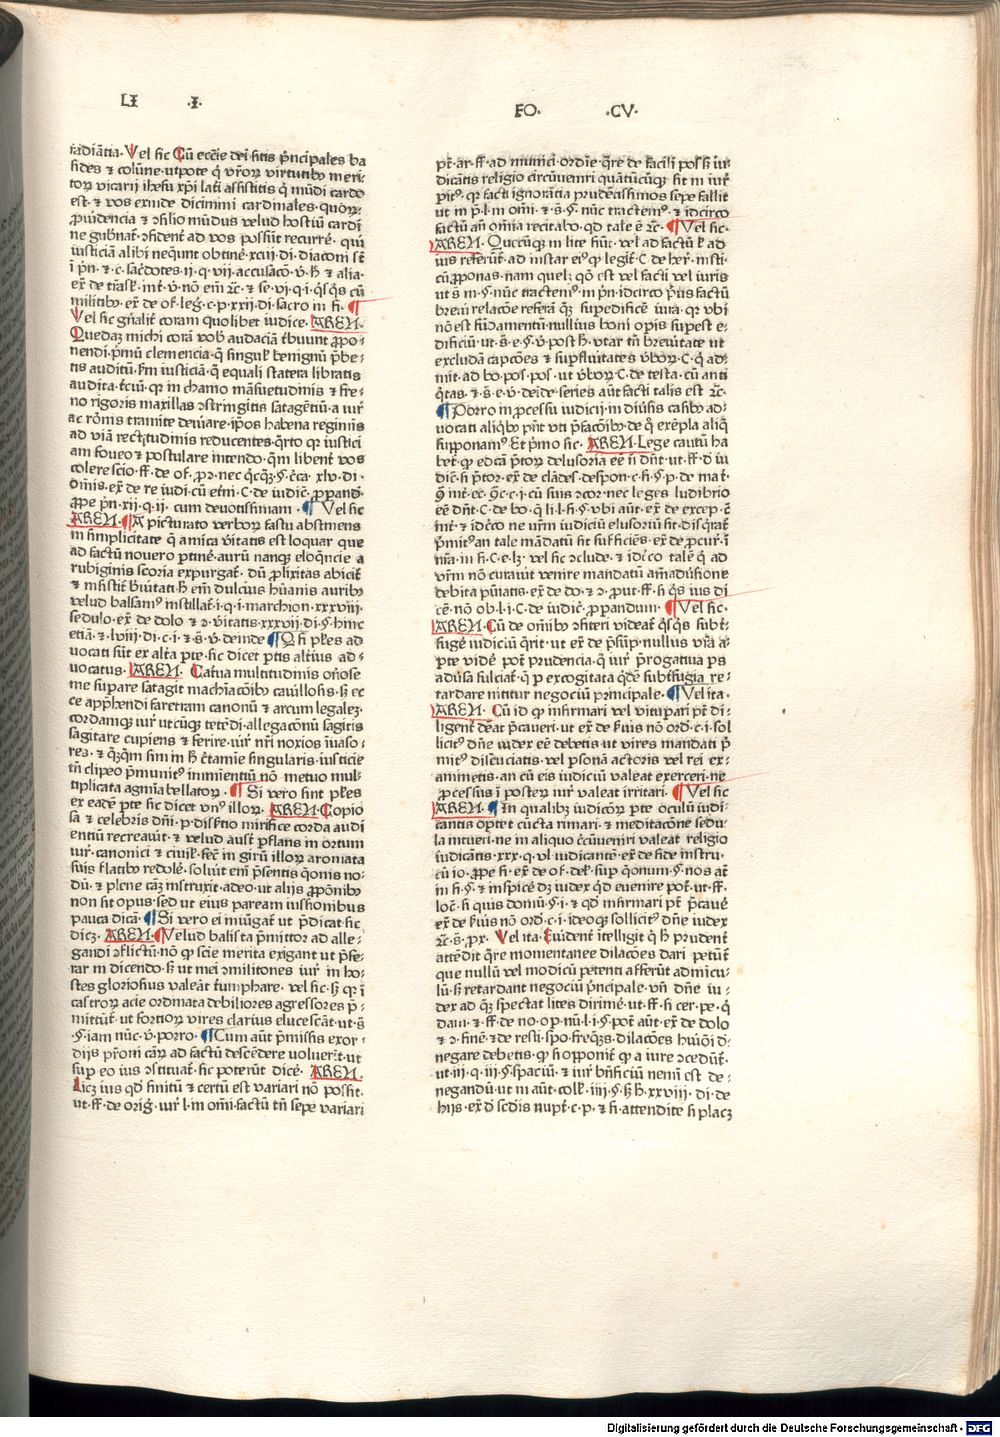 LI ·I·
FO· ·CV·
radiātia· Vel sic Cū eccīe dei sitis p̄ncipales ba
sides ⁊ colūne·utpote q̄ vr̄oꝝ virtutibꝫ meri⸗
toꝝ vicarij ihesu xp̄i lati assistitis q̄ mūdi cardo
est· ⁊ vos exinde dicimini cardinales·quoꝝ
ꝓuidencia ⁊ ɔsilio mūdus velud hostiū cardi
ne gubnat̄·ɔfident̄ ad vos possūt recurre̅· qui
iusticiā alibi neq̄unt obtine̅·xciii·di·diaconi st̄
militibꝫ· ex̄ de of·leḡ·c·p·xxii·di·sacro in fi· ¶
Vel sic gn̄alit̄ coram quolibet iudice· AREN·
Quedaꝫ michi corā vob̄ audaciā tbuunt ꝓpo⸗
nendi·p̄mū clemencia·q̄ singul' benignū p̄be⸗
tis auditū·sm̄ iusticiā·q̄ equali statera libratis
audita·tc̄iū·qꝛ in chamo māsuetudinis ⁊ fre⸗
no rigoris maxillas ɔstringitis satagētiū·a iur̄
ac rōnis tramite deuiare·ip̄os habena reginnis
ad viā rectitudinis reducentes·q̄rto qꝛ iustici
am foueo ⁊ postulare intendo·q̄m libent̄ vos
colere scio·
ꝓpe p̄n·xii·q·ii· cum deuotissimam· ¶ Vel sic
AREN· ¶ A picturato verboꝝ fastu abstinens
in simplicitate q̄ amica v̄itatis est loquar que
ad factū nouero ptine̅·aurū nanqꝫ eloq̄ncie a
rubiginis scoria expurgat̄· dū ꝓlixitas abicit̄
⁊ insistit̄ b̄uitati·h̄ em̄ dulcius hūanis auribꝫ
velud balsamꝰ instillat̄·i·q·i·marchion·xxxviii·
sedulo·ex̄ de dolo ⁊ ɔ·v̄itatis·xxxvii·di·§·hinc
etiā· ⁊·lviii·di·c·i·⁊·s̄·v̄·deinde ¶ Q si pl̄es ad
uocati sūt ex alt̄a pte·sic dicet ptis alt̄ius ad⸗
uocatus· AREN· Cat̄ua multitudinis on̄ose
me supare satagit machīacōibꝫ cauillosis·sꝫ ec
ce app̄hendi faretram canonū ⁊ arcum legaleꝫ·
cordamqꝫ iur̄ utcūqꝫ tetēdi·allegacōnū sagitis
sagitare cupiens ⁊ ferire·iur̄ nr̄i noxios īuaso⸗
res· ⁊ q̄ꝫq̄m sim in h̄ c̄tamie singularis·iusticie
tn̄ clipeo p̄munitꝰ imminentiū nō metuo mul⸗
tiplicata agmīa bellatoꝝ· ¶ Si vero sint pl̄es
ex eadē pte sic dicet vnꝰ illoꝝ· AREN· Copio
sa ⁊ celebris dn̄i·p·disc̄tio mirifice corda audi
entiū recreauit· ⁊ velud aust̄ pflans in ortum
iur̄·canonici ⁊ ciuil'·fec̄ in girū illoꝝ aromata
suis flatibꝫ redole̅·soluit em̄ p̄sentis q̄onis no⸗
dū· ⁊ plene cāꝫ instruxit·adeo·ut alijs ꝓpōnibꝫ
non sit opus·sed ut eius paream iussionibus
pauca dicā· ¶ Si vero ei iniūgat̄ ut p̄dicat sic
dicꝫ· AREN· ¶ Velud balista p̄mittor ad alle⸗
gandi ɔflictū·nō qꝫ scīe merita exigant ut p̄fe⸗
rar in dicendo·sꝫ ut mei ɔmilitones iur̄ in ho⸗
stes gloriosius valeāt t̄umphare· vel sic·sꝫ qꝛ ī
castroꝝ acie ordinata debiliores agressores p̄⸗
mittūt̄·ut fortioꝝ vires clarius elucescāt·ut·s̄
·§·iam nūc·v̄·porro· ¶ Cum aūt p̄missis exor⸗
dijs pr̄oni cāꝝ ad factū descēdere voluer̄t·ut
sup eo ius ɔstituat̄·sic poterūt dice̅· AREN·
Licꝫ ius qd̄ finitū ⁊ certū est variari nō possit·
ut·ff·de oriḡ·iur̄·l·in om̄i·factū tn̄ sepe variari
pt̄·ar·ff·ad munici·ordīe·q̄re de facili poss; iu⸗
dicātis religio circūueniri quātūcūqꝫ sit in iur̄
pitꝰ·qꝛ facti ignorātia prudētissimos sepe fallit
ut in p̄·l·in om̄i·⁊·s̄·§·nūc tractemꝰ·⁊ idcirco
factū an̄ om̄ia recitabo·qd̄ tale ē ⁊c̄· ¶ Vel sic·
AREN· Quecūqꝫ in lite siūt·vel ad factū l' ad
ius referūt̄·ad instar eiꝰ qꝫ legit̄·C·de her̄·insti·
cū ꝓponas·nam queleꝫ q̄o est vel facti vel iuris
ut s̄·in·§·nūc tractemꝰ·in p̄n·idcirco p̄us factū
breui relacōe referā·q̄ꝫ supedifice̅ iura·qꝛ vbi
nō est fūdamentū·nullius boni opis supest e⸗
dificiū·ut·s̄·e·§·v̄·post h̄·vtar tn̄ breuitate ut
excludā capcōes ⁊ supfluitates v̄boꝝ·C·q̄ ad⸗
mit·ad bo·pos·pos·ut v̄boꝝ·C·de testa·cū anti
q̄tas·⁊·s̄·e·v̄·deīde·series aūt facti talis est ⁊c̄·
¶ Porro in ꝓcessu iudicij in diūsis casibꝫ ad⸗
uocati aliqībꝫ pn̄t vti p̄facōibꝫ·de q̄ exēpla aliq̄
supponamꝰ·Et p̄mo sic· AREN· Lege cautū ha
bet̄·qꝫ edcā p̄toꝝ delusoria eē n̄ dn̄t·ut·ff·d̄ iu
īnt̄·⁊ idc̄co ne ur̄m iudiciū elusoriū sit·disq̄rat̄
p̄mitꝰ·an tale mādatū sit sufficiēs·ex̄ de ꝓcur̄·ī
nr̄a·in fi·C·e·lꝫ· vel sic ɔclude·⁊ idc̄co talē q̄ ad
vr̄m nō curauit venire mandatū am̄adūsione
debita pūiatis·ex̄ de do·⁊ ɔ·ꝓut·ff·si q̄s ius di
cē·nō ob·l·i·C·de iudic̄·ꝓpandum· ¶ Vel sic·
AREN· Cū de om̄ibꝫ ɔfiteri videat̄ q̄sq̄s subt̄⸗
fuge̅ iudiciū q̄rit·ut ex̄ de p̄sūp·nullus vr̄a a⸗
p̄te vide̅ pot̄ prudencia·q̄ iur̄ p̄rogatiua ps
adūsa fulciat̄·q̄ p excogitata q̄dē subt̄fugia re⸗
tardare nititur negociū principale· ¶ Vel ita·
AREN· Cū id qꝫ infirmari vel vitupari pt̄ di⸗
ligent̄ dēat p̄caueri·ut ex̄ de s̄uis nō ord̄·c·i·sol
licitꝰ dn̄e iudex eē debetis·ut vires mandati p̄
mitꝰ discuciatis·vel psonā actoris vel rei ex⸗
aminetis·an cū eis iudiciū valeat exerceri·ne
ꝓcessus ī posteꝝ iur̄ valeat irritari· ¶ Vel sic
AREN· ¶ In qualibꝫ iudicōꝝ pte oculū iudi⸗
cantis optet cūcta rimari·⁊ meditacōne sedu⸗
la intueri·ne in aliquo c̄cūueniri valeat religio
iudicātis·xxx·q·vl iudicantē·ex̄ de fide instru·
cū io·ꝓpe fi·ex̄ de of·del'·sup q̄onum·§·nos at̄
in fi·§·⁊ inspice̅ dꝫ iudex qd̄ euenire pot̄·ut·ff·
loc̄·si quis domū·§·i·⁊ qd̄ infirmari pt̄ p̄caue̅
ex̄ de s̄uis nō ord̄·c·i·ideoqꝫ sollicitꝰ dn̄e iudex
⁊c̄·s̄·ꝓx· Vel ita· Euident̄ īteligit q̄ h̄ prudent̄
attēdit q̄re momentanee dilacōes dari petūt̄·
que nullū vel modicū petenti afferūt admicu⸗
lū·sꝫ retardant negociū p̄ncipale·vn̄ dn̄e iu⸗
dex ad q̄ꝫ spectat lites dirime̅·ut·ff·si cer·pe·q̄
dam·⁊·ff·de no·op·nū·l·i·§·pot̄ aūt·ex̄ de dolo
⁊ ɔ·fine̅·⁊ de resti·spo·freq̄ꝫs·dilacōes huiōi d̄⸗
negare debetis·qꝫ si opponit̄ qꝫ a iure ɔcedūt̄·
ut·iii·q·iii·§·spaciū·⁊ iur̄ bn̄ficiū nemī est de⸗
negandū·ut in aūt·coll'·iiii·§·sꝫ h̄·xxviii· di·de
hijs·ex̄ d̄ scdis nupt̄·c·p·⁊ si·attendite si placꝫ
Digitalisierung gefördert durch die Deutsche Forschungsgemeinschaft · DFG